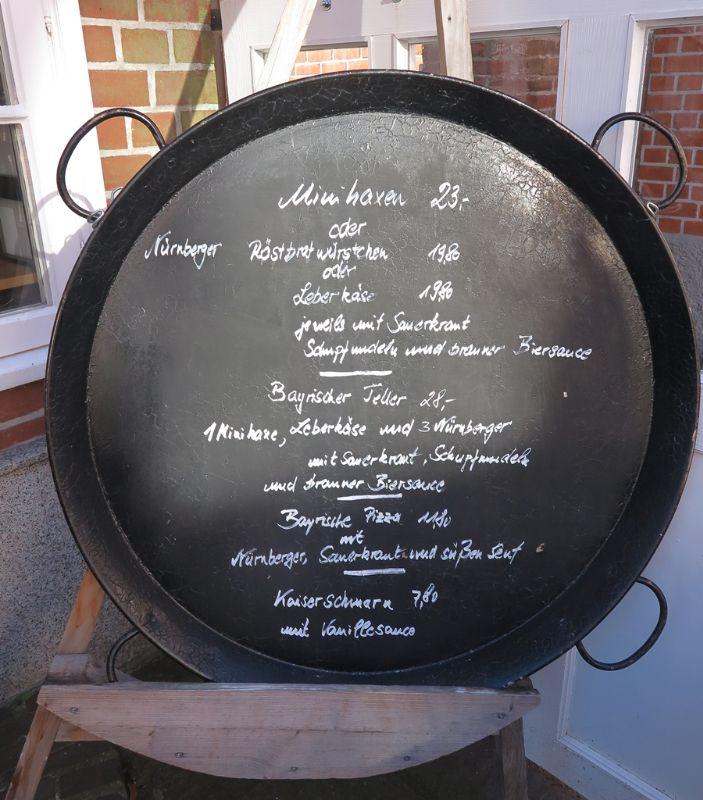 Minihaxen 23,-
oder
Nürnberger Röstbratwürstchen 19,80
oder
Leberkäse 19,80
jeweils mit Sauerkraut
Schupfnudeln und brauner Biersauce
Bayrischer Teller 28,-
1 Minihaxe, Leberkäse und 3 Nürnberger
mit Sauerkraut, Schupfnudeln
und brauner Biersauce
Bayrische Pizza 11,80
mit
Nürnberger, Sauerkraut und süßen Senf
Kaiserschmarn 7,80
mit Vanillesauce